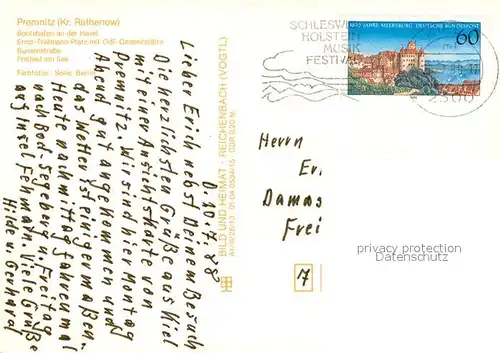 Premnitz (Kr. Rathenow)
Bootshafen an der Havel
Ernst-Thälmann-Platz mit OdF-Gedenkstätte
Bunsenstraße
Freibad am See
BILD UND HEIMAT · REICHENBACH (VOGTL)
D. 10.7.88
Lieber Erich nebst Deinem Besuch
Die herzlichsten Grüße aus Kiel
mit einer Ansichtskarte von
Premnitz. Wir sind hier Montag
Abend gut angekommen und
das Wetter ist einigermaßen.
Heute nachmittag fahren wir mal
nach Bad-Segeberg u. Freitag
auf Insel Fehmarn. Viele Grüße
Hilde u. Gerhard
SCHLESWIG
HOLSTEIN
MUSIK
FESTIVAL
1000 JAHRE MEERSBURG DEUTSCHE BUNDESPOST
60
2300
Herrn
Er.
Damas
Frei
privacy protection
Datenschutz
17